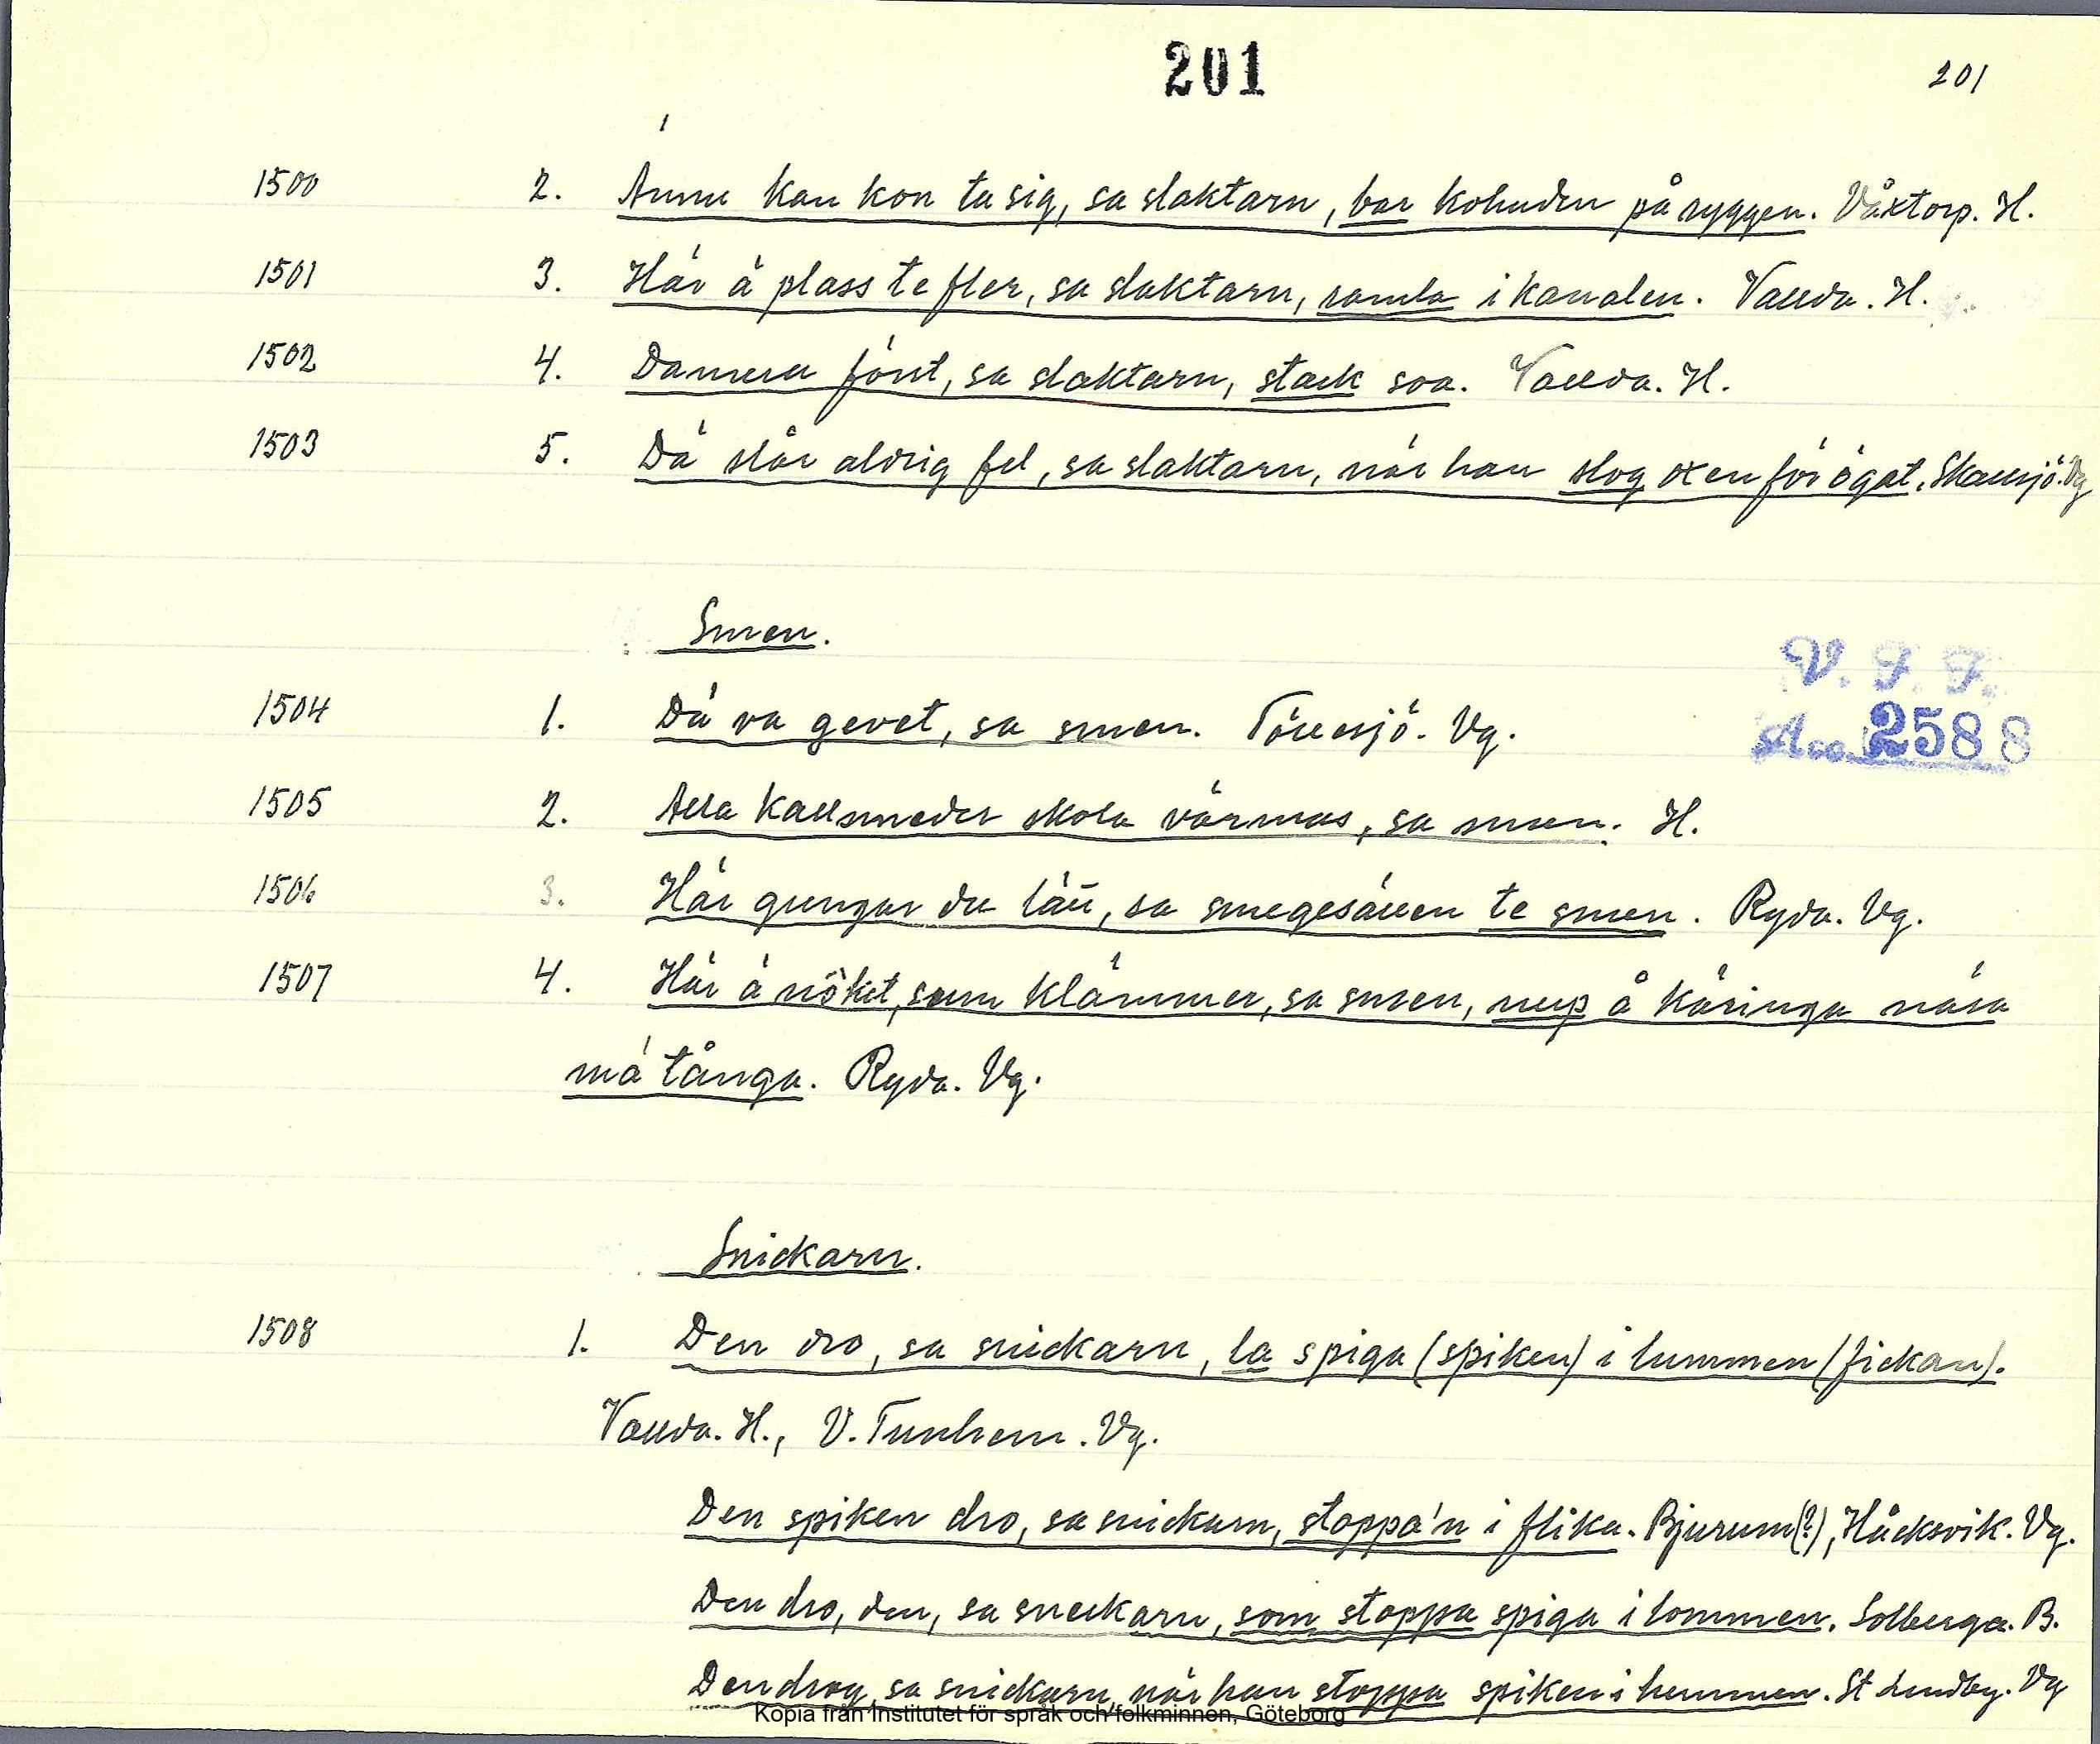 201
201
1500 2. Ännu kan kon ta sig, sa slaktarn, bar kohuden på ryggen. Våxtorp. H.
1501 3. Här ä plass te fler, sa slaktarn, ramla i kanalen. Vallda. H.
1502 4. Damma fönt, sa slaktarn, stack soa. Vallda. H.
1503 5. Dä slår aldrig fel, sa slaktarn, när han slog oxen för ögat. Skallsjö. Vg
Smen.
V. F. F.
1504 1. Dä va gevet, sa smen. Töllesjö. Vg.
Acc. 2588
1505 2. Alla kallsmeder skola värmas, sa smen. H.
1506 3. Här gungar du lätt, sa smegesällen te smen. Ryda. Vg.
1507 4. Här ä nöket, som klämmer, sa smen, nup å käringa näsa
mä tånga. Ryda. Vg.
Snickarn.
1508 1. Den dro, sa snickarn, la spiga (spiken) i lummen (fickan).
Vallda. H., V. Tunhem. Vg.
Den spiken dro, sa snickarn, stoppa'n i flika. Bjurum(?), Håcksvik. Vg.
Den dro, den, sa sneckarn, som stoppa spiga i lommen. Solberga. B.
Den drog, sa snickarn, när han stoppa spiken i lummen. St Lundby. Vg
Kopia från Institutet för språk och folkminnen, Göteborg